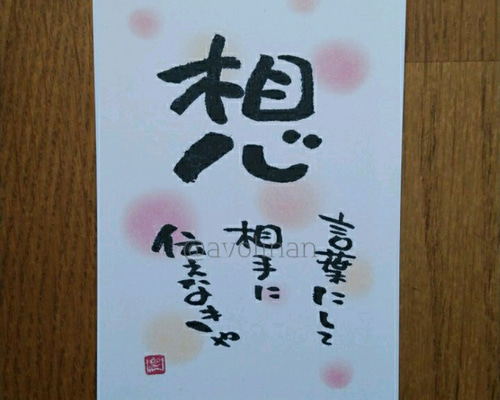 想
言葉にして
相手に
伝えなきゃ